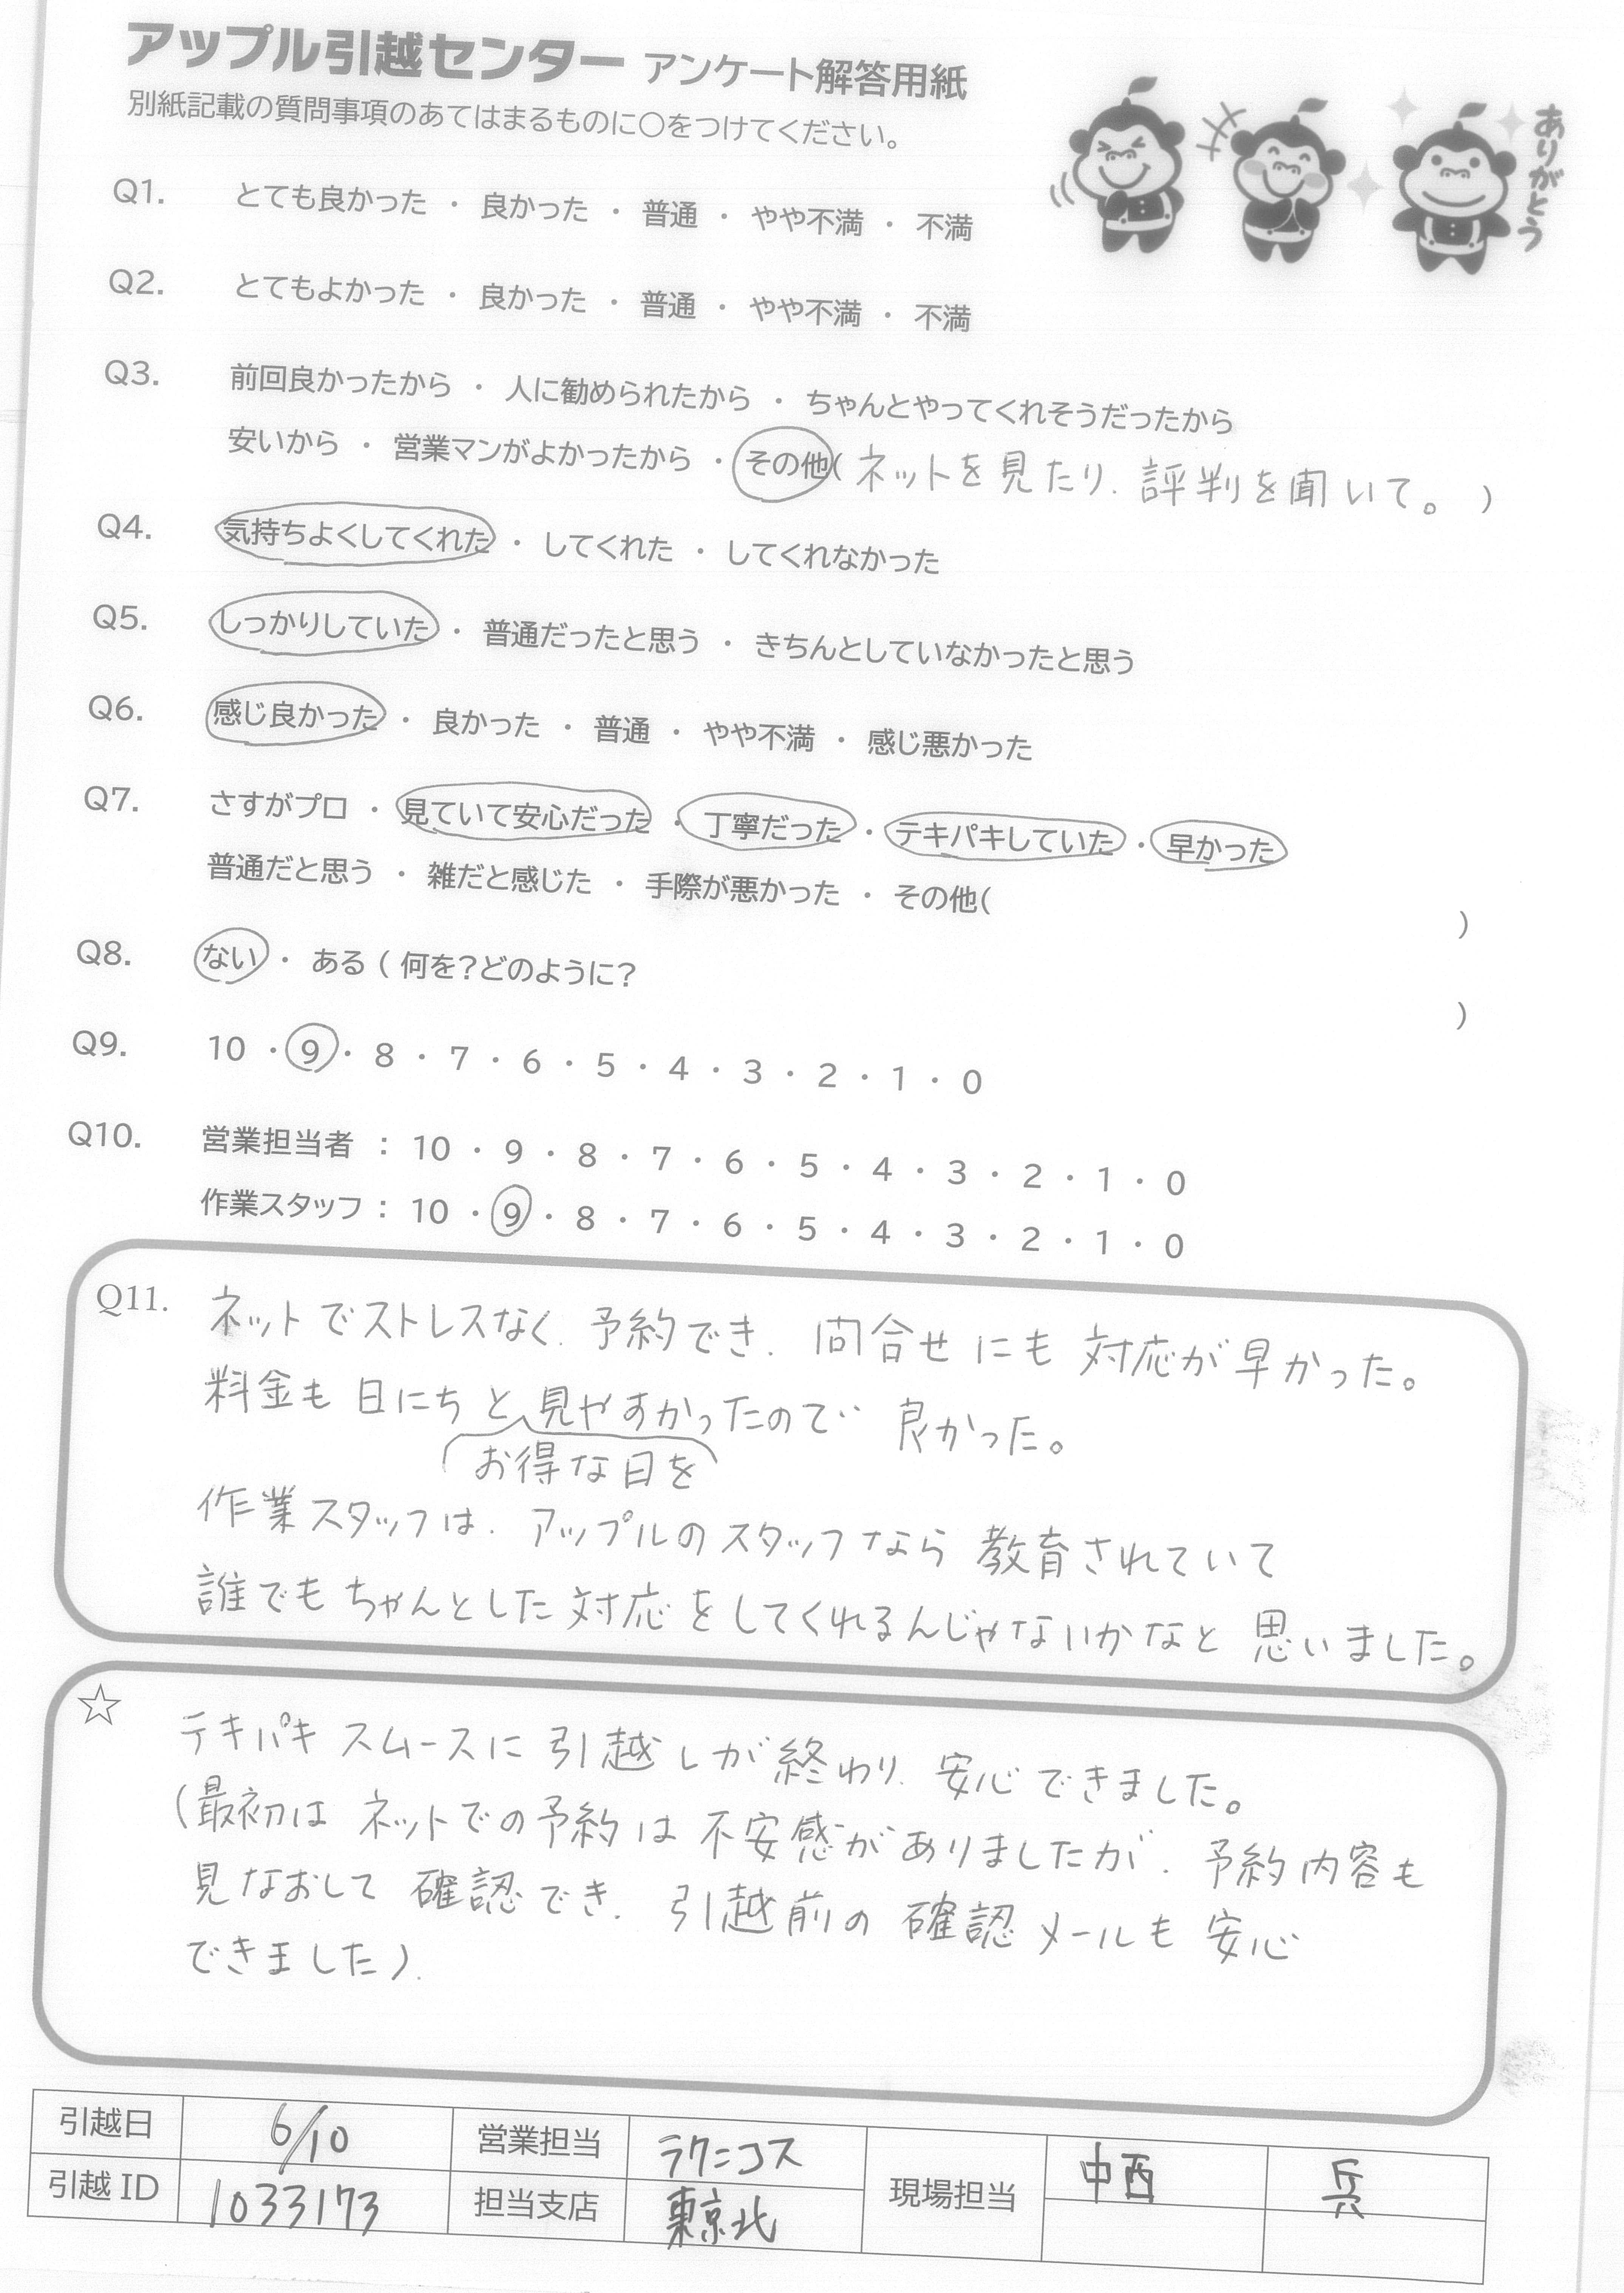 アップル引越センター アンケート解答用紙
別紙記載の質問事項のあてはまるものに○をつけてください。
ありがとう
Q1. とても良かった ・ 良かった ・ 普通 ・ やや不満 ・ 不満
Q2. とてもよかった ・ 良かった ・ 普通 ・ やや不満 ・ 不満
Q3. 前回良かったから ・ 人に勧められたから ・ ちゃんとやってくれそうだったから
安いから ・ 営業マンがよかったから ・ その他( ネットを見たり、評判を聞いて。 )
Q4. 気持ちよくしてくれた ・ してくれた ・ してくれなかった
Q5. しっかりしていた ・ 普通だったと思う ・ きちんとしていなかったと思う
Q6. 感じ良かった ・ 良かった ・ 普通 ・ やや不満 ・ 感じ悪かった
Q7. さすがプロ ・ 見ていて安心だった ・ 丁寧だった ・ テキパキしていた ・ 早かった
普通だと思う ・ 雑だと感じた ・ 手際が悪かった ・ その他( )
Q8. ない ・ ある ( 何を?どのように? )
Q9. 10 ・ 9 ・ 8 ・ 7 ・ 6 ・ 5 ・ 4 ・ 3 ・ 2 ・ 1 ・ 0
Q10. 営業担当者 : 10 ・ 9 ・ 8 ・ 7 ・ 6 ・ 5 ・ 4 ・ 3 ・ 2 ・ 1 ・ 0
作業スタッフ : 10 ・ 9 ・ 8 ・ 7 ・ 6 ・ 5 ・ 4 ・ 3 ・ 2 ・ 1 ・ 0
Q11. ネットでストレスなく、予約でき、問合せにも対応が早かった。
料金も日にちと見やすかったので良かった。
お得な日を
作業スタッフは、アップルのスタッフなら教育されていて
誰でもちゃんとした対応をしてくれるんじゃないかなと思いました。
☆ テキパキスムースに引越しが終わり、安心できました。
(最初はネットでの予約は不安感がありましたが、予約内容も
見なおして確認でき、引越前の確認メールも安心
できました)
引越日 6/10 営業担当 ラクニコス 現場担当 中西 兵
引越ID 1033173 担当支店 東京北